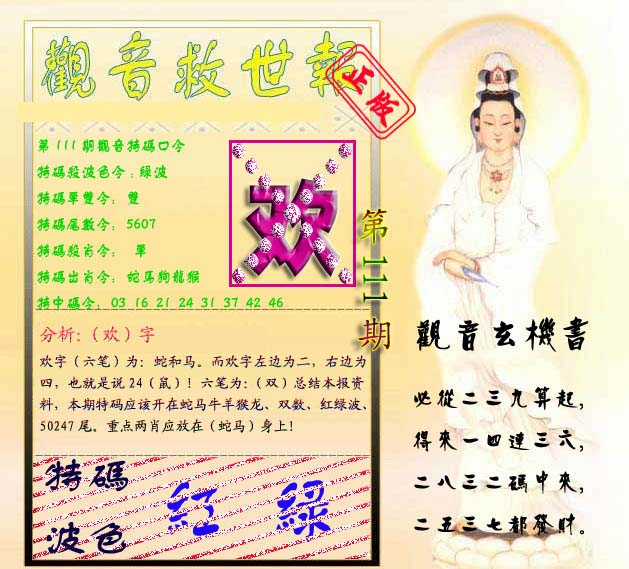 觀音救世報
正版
第111期觀音特碼口令
特碼殺波色令：綠波
特碼單雙令： 雙
特碼尾數令： 5607
特碼殺肖令： 單
特碼出肖令： 蛇馬狗龍猴
特中碼令： 03 16 21 24 31 37 42 46
欢
第111期
分析:（欢）字
欢字（六笔）为：蛇和马。而欢字左边为二，右边为
四，也就是说24（鼠）！六笔为：（双）总结本报资
料，本期特码应该开在蛇马牛羊猴龙、双数、红绿波、
50247尾。重点两肖应放在（蛇马）身上！
特碼
波色
紅 綠
觀音玄機書
必從二三九算起，
得來一四連三六，
二八三二碼中來，
二五三七都發財。